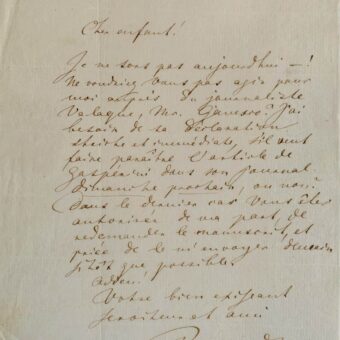 Cher enfant!
Je ne sors pas aujourdhui —!
Ne voudriez vous pas agir pour
moi auprès du journaliste
Valaque, Mr. Ganesco? J'ai
besoin de sa déclaration
stricte et immédiate, s'il veut
faire paraître l'article de
Gasperini dans son journal
dimanche prochain, ou non?
Dans le dernier cas vous êtes
autorisé de ma part, de
redemander le manuscrit, et
priée de le m'envoyer demain
sitôt que possible.
Adieu!
Votre bien exigeant
serviteur et ami